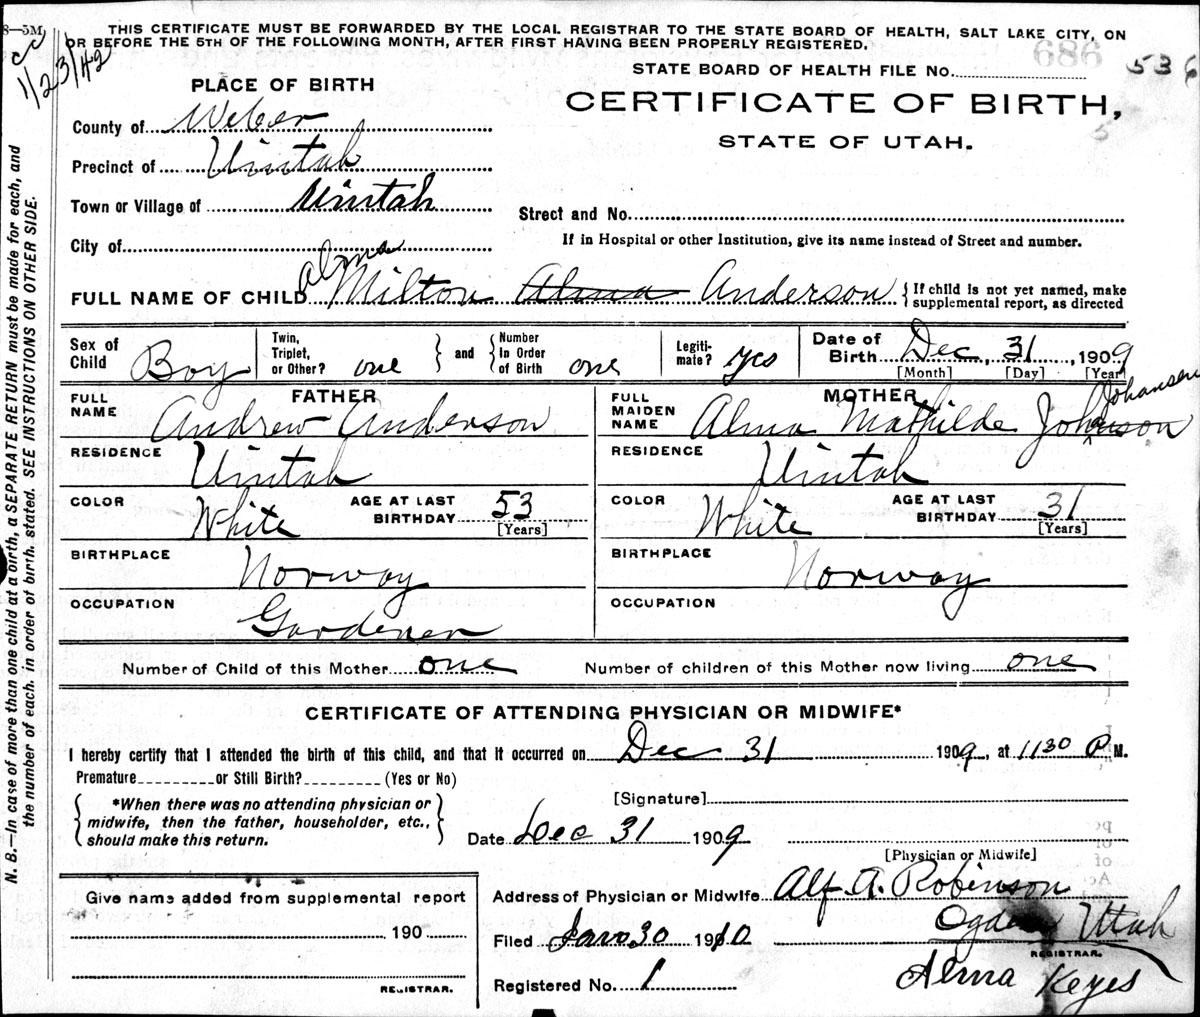 8—5M
THIS CERTIFICATE MUST BE FORWARDED BY THE LOCAL REGISTRAR TO THE STATE BOARD OF HEALTH, SALT LAKE CITY, ON
OR BEFORE THE 5TH OF THE FOLLOWING MONTH, AFTER FIRST HAVING BEEN PROPERLY REGISTERED.
1/23/42
STATE BOARD OF HEALTH FILE No. 536
PLACE OF BIRTH
CERTIFICATE OF BIRTH,
STATE OF UTAH.
County of Weber
Precinct of Uintah
Town or Village of Uintah
Street and No.
City of
If in Hospital or other Institution, give its name instead of Street and number.
Alma
FULL NAME OF CHILD Milton Alma Anderson {If child is not yet named, make supplemental report, as directed
Sex of Child Boy Twin, Triplet, or Other? one and Number In Order of Birth one Legitimate? yes Date of Birth Dec, 31, 1909
[Month] [Day] [Year]
FATHER
MOTHER
Johansen
FULL NAME Andrew Anderson
FULL MAIDEN NAME Alma Mathilde Johnson
RESIDENCE Uintah
RESIDENCE Uintah
COLOR White AGE AT LAST BIRTHDAY 53 [Years]
COLOR White AGE AT LAST BIRTHDAY 31 [Years]
BIRTHPLACE Norway
BIRTHPLACE Norway
OCCUPATION Gardener
OCCUPATION
Number of Child of this Mother one Number of children of this Mother now living one
CERTIFICATE OF ATTENDING PHYSICIAN OR MIDWIFE*
I hereby certify that I attended the birth of this child, and that it occurred on Dec 31 1909, at 11 30 P M.
Premature or Still Birth? (Yes or No)
*When there was no attending physician or
midwife, then the father, householder, etc.,
should make this return.
[Signature]
Date Dec 31 1909
[Physician or Midwife]
Address of Physician or Midwife Alf. A. Robinson
Ogden Utah
Filed Jan 30 1910
REGISTRAR.
Registered No. 1
Alma Keyes
Give name added from supplemental report
190
REGISTRAR.
N. B.—In case of more than one child at a birth, a SEPARATE RETURN must be made for each, and
the number of each, in order of birth, stated. SEE INSTRUCTIONS ON OTHER SIDE.